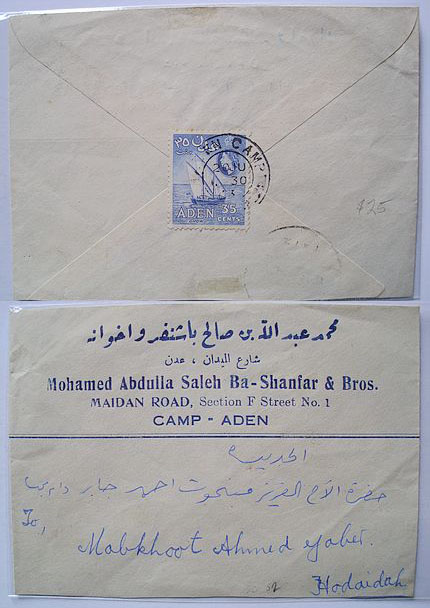 عدن ٣٥
ADEN 35 CENTS
EN CAMP
30
$25
محمد عبد الله بن صالح باشنفر واخوانه
شارع الميدان ، عدن
Mohamed Abdulla Saleh Ba-Shanfar & Bros.
MAIDAN ROAD, Section F Street No. 1
CAMP - ADEN
الحديده
حضرة الاخ العزيز مبخوت احمد جابر
To,
Mabkhoot Ahmed Jaber.
Hodaidah